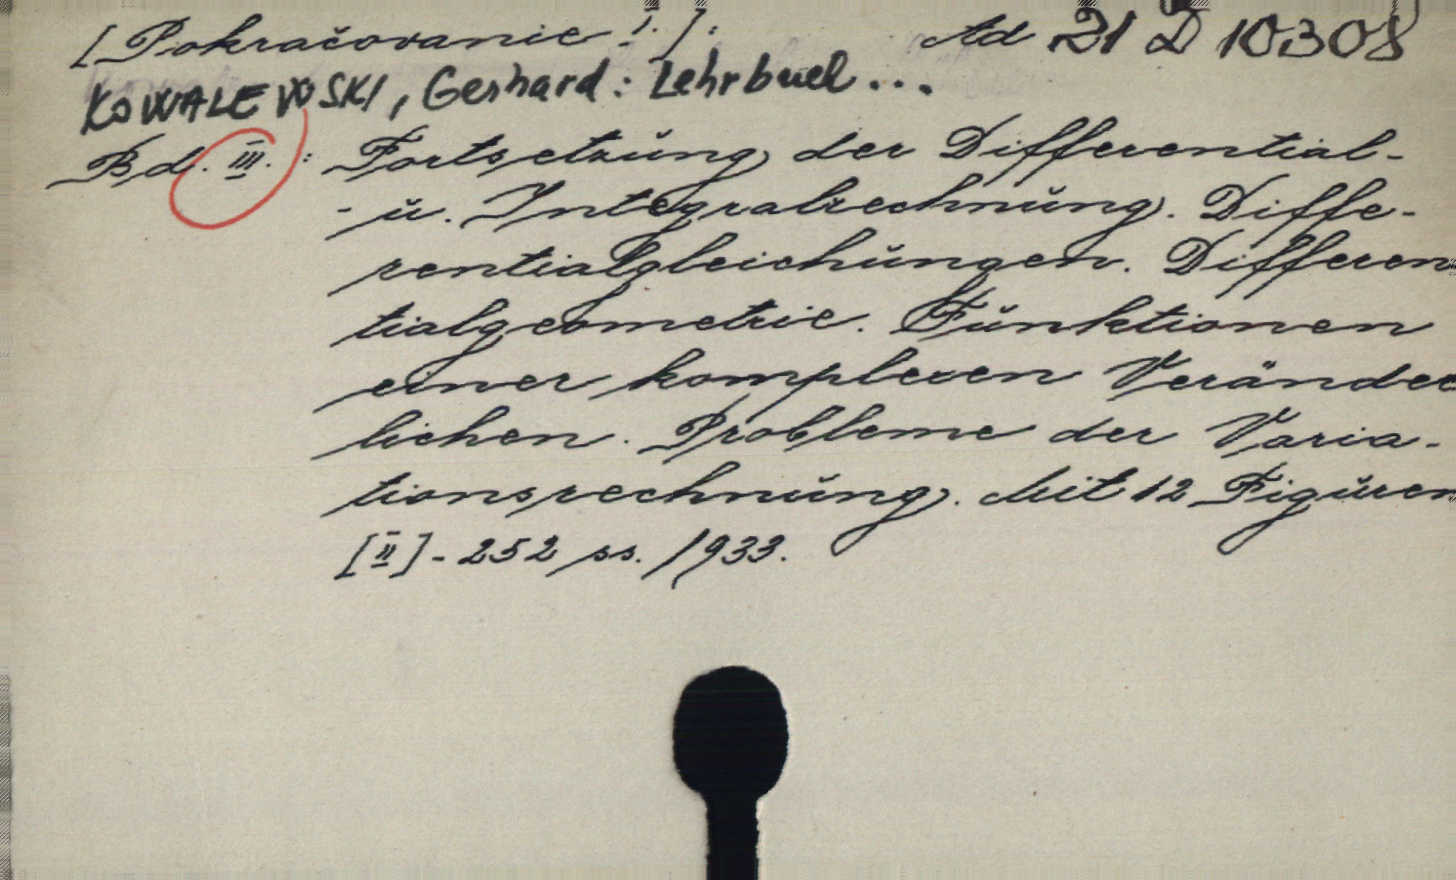 [Pokračovanie I.]: Ad 21 D 10308
KOWALEWSKI, Gerhard: Lehrbuch...
Bd. III.: Fortsetzŭng der Differential-
-ŭ. Integralrechnŭng. Diffe-
rentialgleichŭngen. Differen
tialgeometrie. Fŭnktionen
einer komplexen Veränder
lichen. Probleme der Varia-
tionsrechnŭng. Mit 12 Figŭren
[II] - 252 ss. 1933.